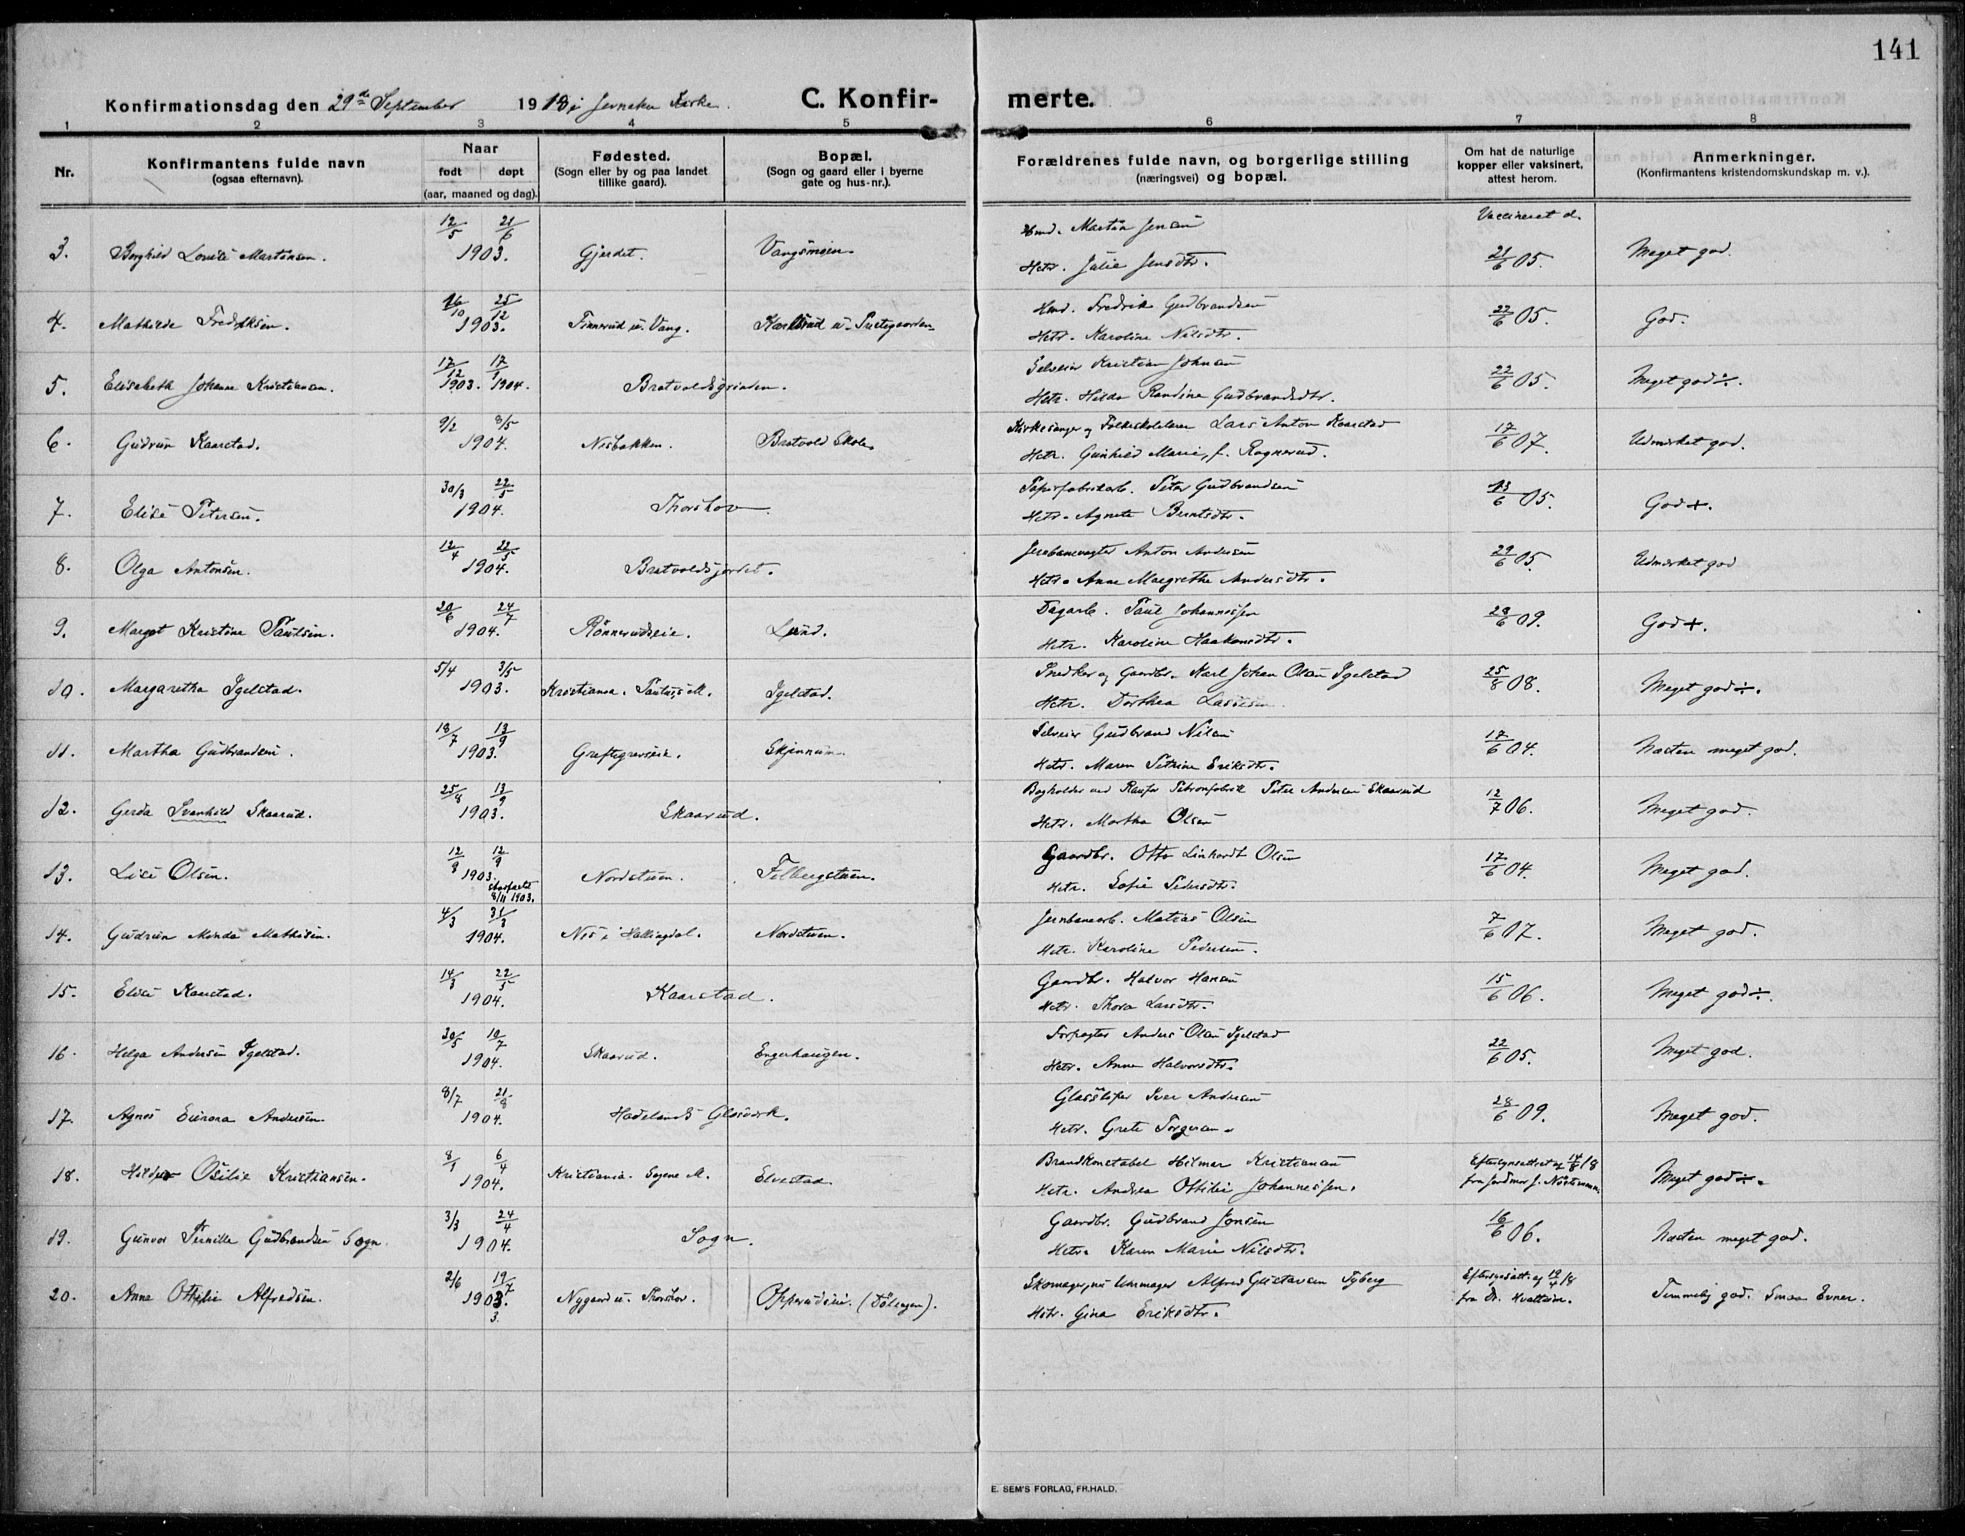 141
Konfirmationsdag den 29de September 1918 i Jevnaker Kirke. C. Konfir- merte.
1 2 3 4 5 6 7 8
Nr. Konfirmantens fulde navn (ogsaa efternavn). Naar født døpt (aar, maaned og dag). Fødested. (Sogn eller by og paa landet tillike gaard). Bopæl. (Sogn og gaard eller i byerne gate og hus-nr.). Forældrenes fulde navn, og borgerlige stilling (næringsvei) og bopæl. Om hat de naturlige kopper eller vaksinert, attest herom. Anmerkninger. (Konfirmantens kristendomskundskap m. v.).
3. Borghild Lovise Martinsen. 12/5 21/6 1903. Gjerdet. Vangsmoen Hmd. Martin Jensen Vaccineret d. 21/6 05. Meget god.
Hstr. Julie Jensdtr.
4. Mathilde Fredriksen. 16/10 25/12 1903. Finnerud u. Vang. Karlsrud u. Prestegaarden Hmd. Fredrik Gudbrandsen 22/6 05. God.
Hstr. Karoline Nilsdtr.
5. Elisabeth Johanne Kristiansen. 17/12 1903. 17/1 1904. Bratvoldsgrinden. Selveier Kristian Johnsen 22/6 05. Meget god ÷.
Hstr. Hilda Randine Gudbrandsdtr.
6. Gudrun Kaarstad. 9/2 8/5 1904. Nesbakken. Bratvold Skole Kirkesanger og Folkeskolelærer Lars Anton Kaarstad 17/6 07. Udmerket god.
Hstr. Gunhild Marie, f. Rognerud.
7. Elise Petersen. 30/3 22/5 1904. Thorshov. Papirfabrikarb. Peter Gudbrandsen 13/6 05. God +.
Hstr. Agnete Berntsdtr.
8. Olga Antonsen. 12/4 22/5 1904. Bratvoldsjordet. Jernbanevogter Anton Andersen 29/6 05. Udmerket god
Hstr. Anne Margrethe Andersdtr.
9. Margot Kristine Paulsen. 20/6 24/7 1904. Rønnerudseie. Lund. Dagarb. Paul Johannessen 28/6 09. God +.
Hstr. Karoline Haakensdtr.
10. Margaretha Igelstad. 5/4 3/5 1903. Kristiania. Paulus M. Igelstad. Snedker og Gaardbr. Karl Johan Olsen Igelstad 25/8 08. Meget god ÷.
Hstr. Dorthea Larsen
11. Martha Gudbrandsen. 18/7 13/9 1903. Greftegrevseie. Skjennum Selveier Gudbrand Nilsen 17/6 04. Næsten meget god.
Hstr. Maren Petrine Eriksdtr.
12. Gerda Svanhild Skaarud. 25/8 13/9 1903. Skaarud. Bogholder ved Raufos Patronfabrik Peter Andersen Skaarud 12/7 06. Meget god.
Hstr. Martha Olsen
13. Lise Olsen. 12/9 12/9 1903. stadfæstet 8/11 1903. Nordstuen. Felbergstuen. Gaardbr. Otto Linhardt Olsen 17/6 04. Meget god.
Hstr. Sofie Pedersdtr.
14. Gudrun Minda Mathisen. 4/3 31/3 1904. Nes i Hallingdal. Nordstuen. Jernbanearb. Matias Olsen 7/6 07. Meget god.
Hstr. Karoline Pedersen.
15. Elise Kaarstad. 14/3 22/5 1904. Kaarstad. Gaardbr. Halvor Hansen 15/6 06. Meget god ÷.
Hstr. Thora Larsdtr.
16. Helga Andersen Igelstad. 30/5 10/7 1904. Skaarud. Engerhaugen. Forpagter Anders Olsen Igelstad 22/6 05. Meget god.
Hstr. Anne Halvorsdtr.
17. Agnes Eurora Andersen. 8/7 21/8 1904. Hadelands Glasværk. Glassliper Iver Andersen 28/6 09. Meget god.
Hstr. Grete Torgersen.
18. Hildur Otilie Kristiansen. 8/1 6/4 1904. Kristiania. Sagene M. Elvestad. Brandkonstabel Hilmar Kristiansen Efterlyseattest af 14/8 18 Meget god ÷.
Hstr. Andrea Ottilie Johannessen. fra Jordmor J.
19. Gunvor Pernille Gudbrandsen Sogn. 3/3 24/4 1904. Sogn. Gaardbr. Gudbrand Jonsen 16/6 06. Næsten meget god.
Hstr. Karen Marie Nilsdtr.
20. Anna Ottilie Alfredsen. 2/6 19/7 1903. 3. Nygaard u. Thorshov. Opperudseie. (Dølingen). Skomager, nu Urmager Alfred Gustavsen Tyberg af 19/4 18 Temmelig god. Smaa Evner.
Hstr. Gina Eriksdtr. fra Dr.
E. SEM'S FORLAG, FR.HALD.